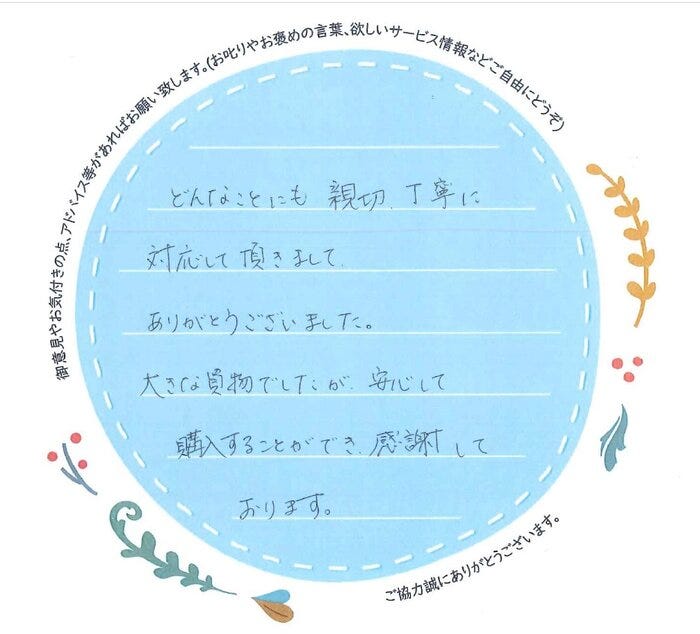 御意見やお気付きの点、アドバイス等があればお願い致します。(お叱りやお褒めの言葉、欲しいサービス情報などご自由にどうぞ)
どんなことにも 親切、丁寧に
対応して 頂きまして、
ありがとうございました。
大きな買物でしたが、安心して
購入することができ、感謝して
おります。
ご協力誠にありがとうございます。